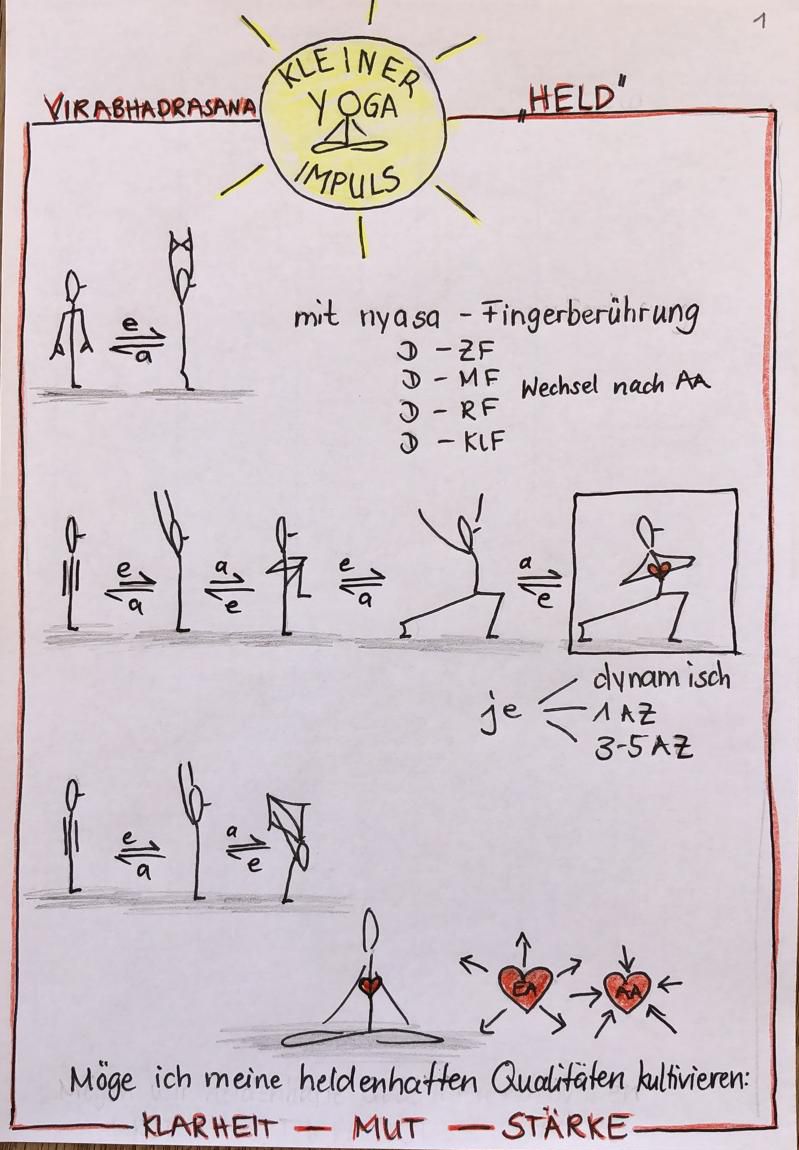 1
KLEINER
YOGA
IMPULS
VIRABHADRASANA
„HELD"
e
a
mit nyasa - Fingerberührung
D - ZF
D - MF
D - RF
D - KlF
Wechsel nach AA
e
a
a
e
e
a
a
e
je
dynamisch
1 AZ
3-5 AZ
e
a
a
e
EA
AA
Möge ich meine heldenhaften Qualitäten kultivieren:
KLARHEIT — MUT — STÄRKE